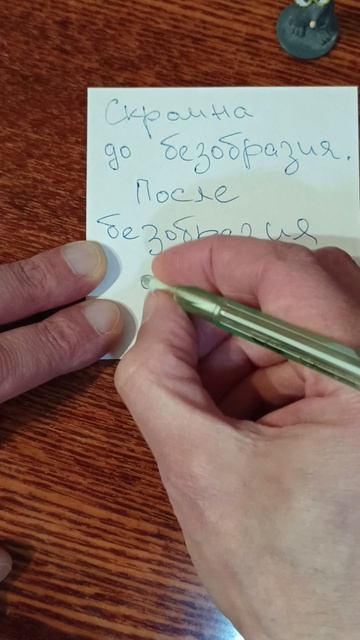 Скромна
до безобразия.
После
безобразия